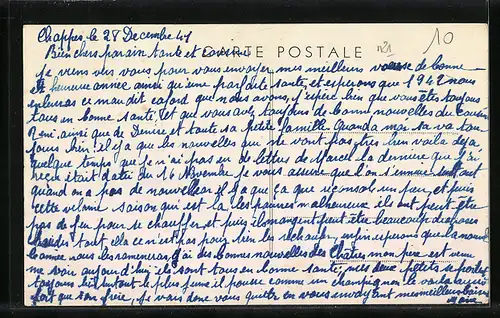 Chappes, le 28 Decembre 41
CARTE POSTALE
n°1
10
Bien chers parrain tante et cousine
Je viens vers vous pour vous envoyer mes meilleurs voeux de bonne
et heureuse année ainsi qu'une parfaite santé, et esperons que 1942 nous
enlevera ce maudit cafard que nous avons, j'espère bien que vous êtes toujours
tous en bonne santé, et que vous avez toujours de bonne nouvelles du cousin
Remi, ainsi que de Denise et toute sa petite famille. Quand a moi sa va tou
jours bien. il y a que les nouvelles qui ne vont pas très bien voila deja
quelque temps que je n'ai pas eu de lettres de Marcel la derniere que j'ai
reçu était daté du 16 Novembre je vous assure que l'on s'ennuie surtout
quand on a pas de nouvelles il y a que ça que nous console un peu, et puis
cette vilaine saison qui est la les pauvres malheureux ils ont peut être
pas de feu pour se chauffer et puis ils mangent peut être beaucoup de choses
chaudes tout cela ce n'est pas pour bien les rechauffer, enfin esperons que la nouvelle
année nous les ramenera. J'ai des bonnes nouvelles des Chatres mon père est venu
me voir aujourd'hui ils sont tous en bonne santé, mes deux petits se portent
toujours bien surtout le plus jeune il pousse comme un champignon le voila aussi
fort que son frère, je vais donc vous quitter en vous envoyant mes meilleurs baisers